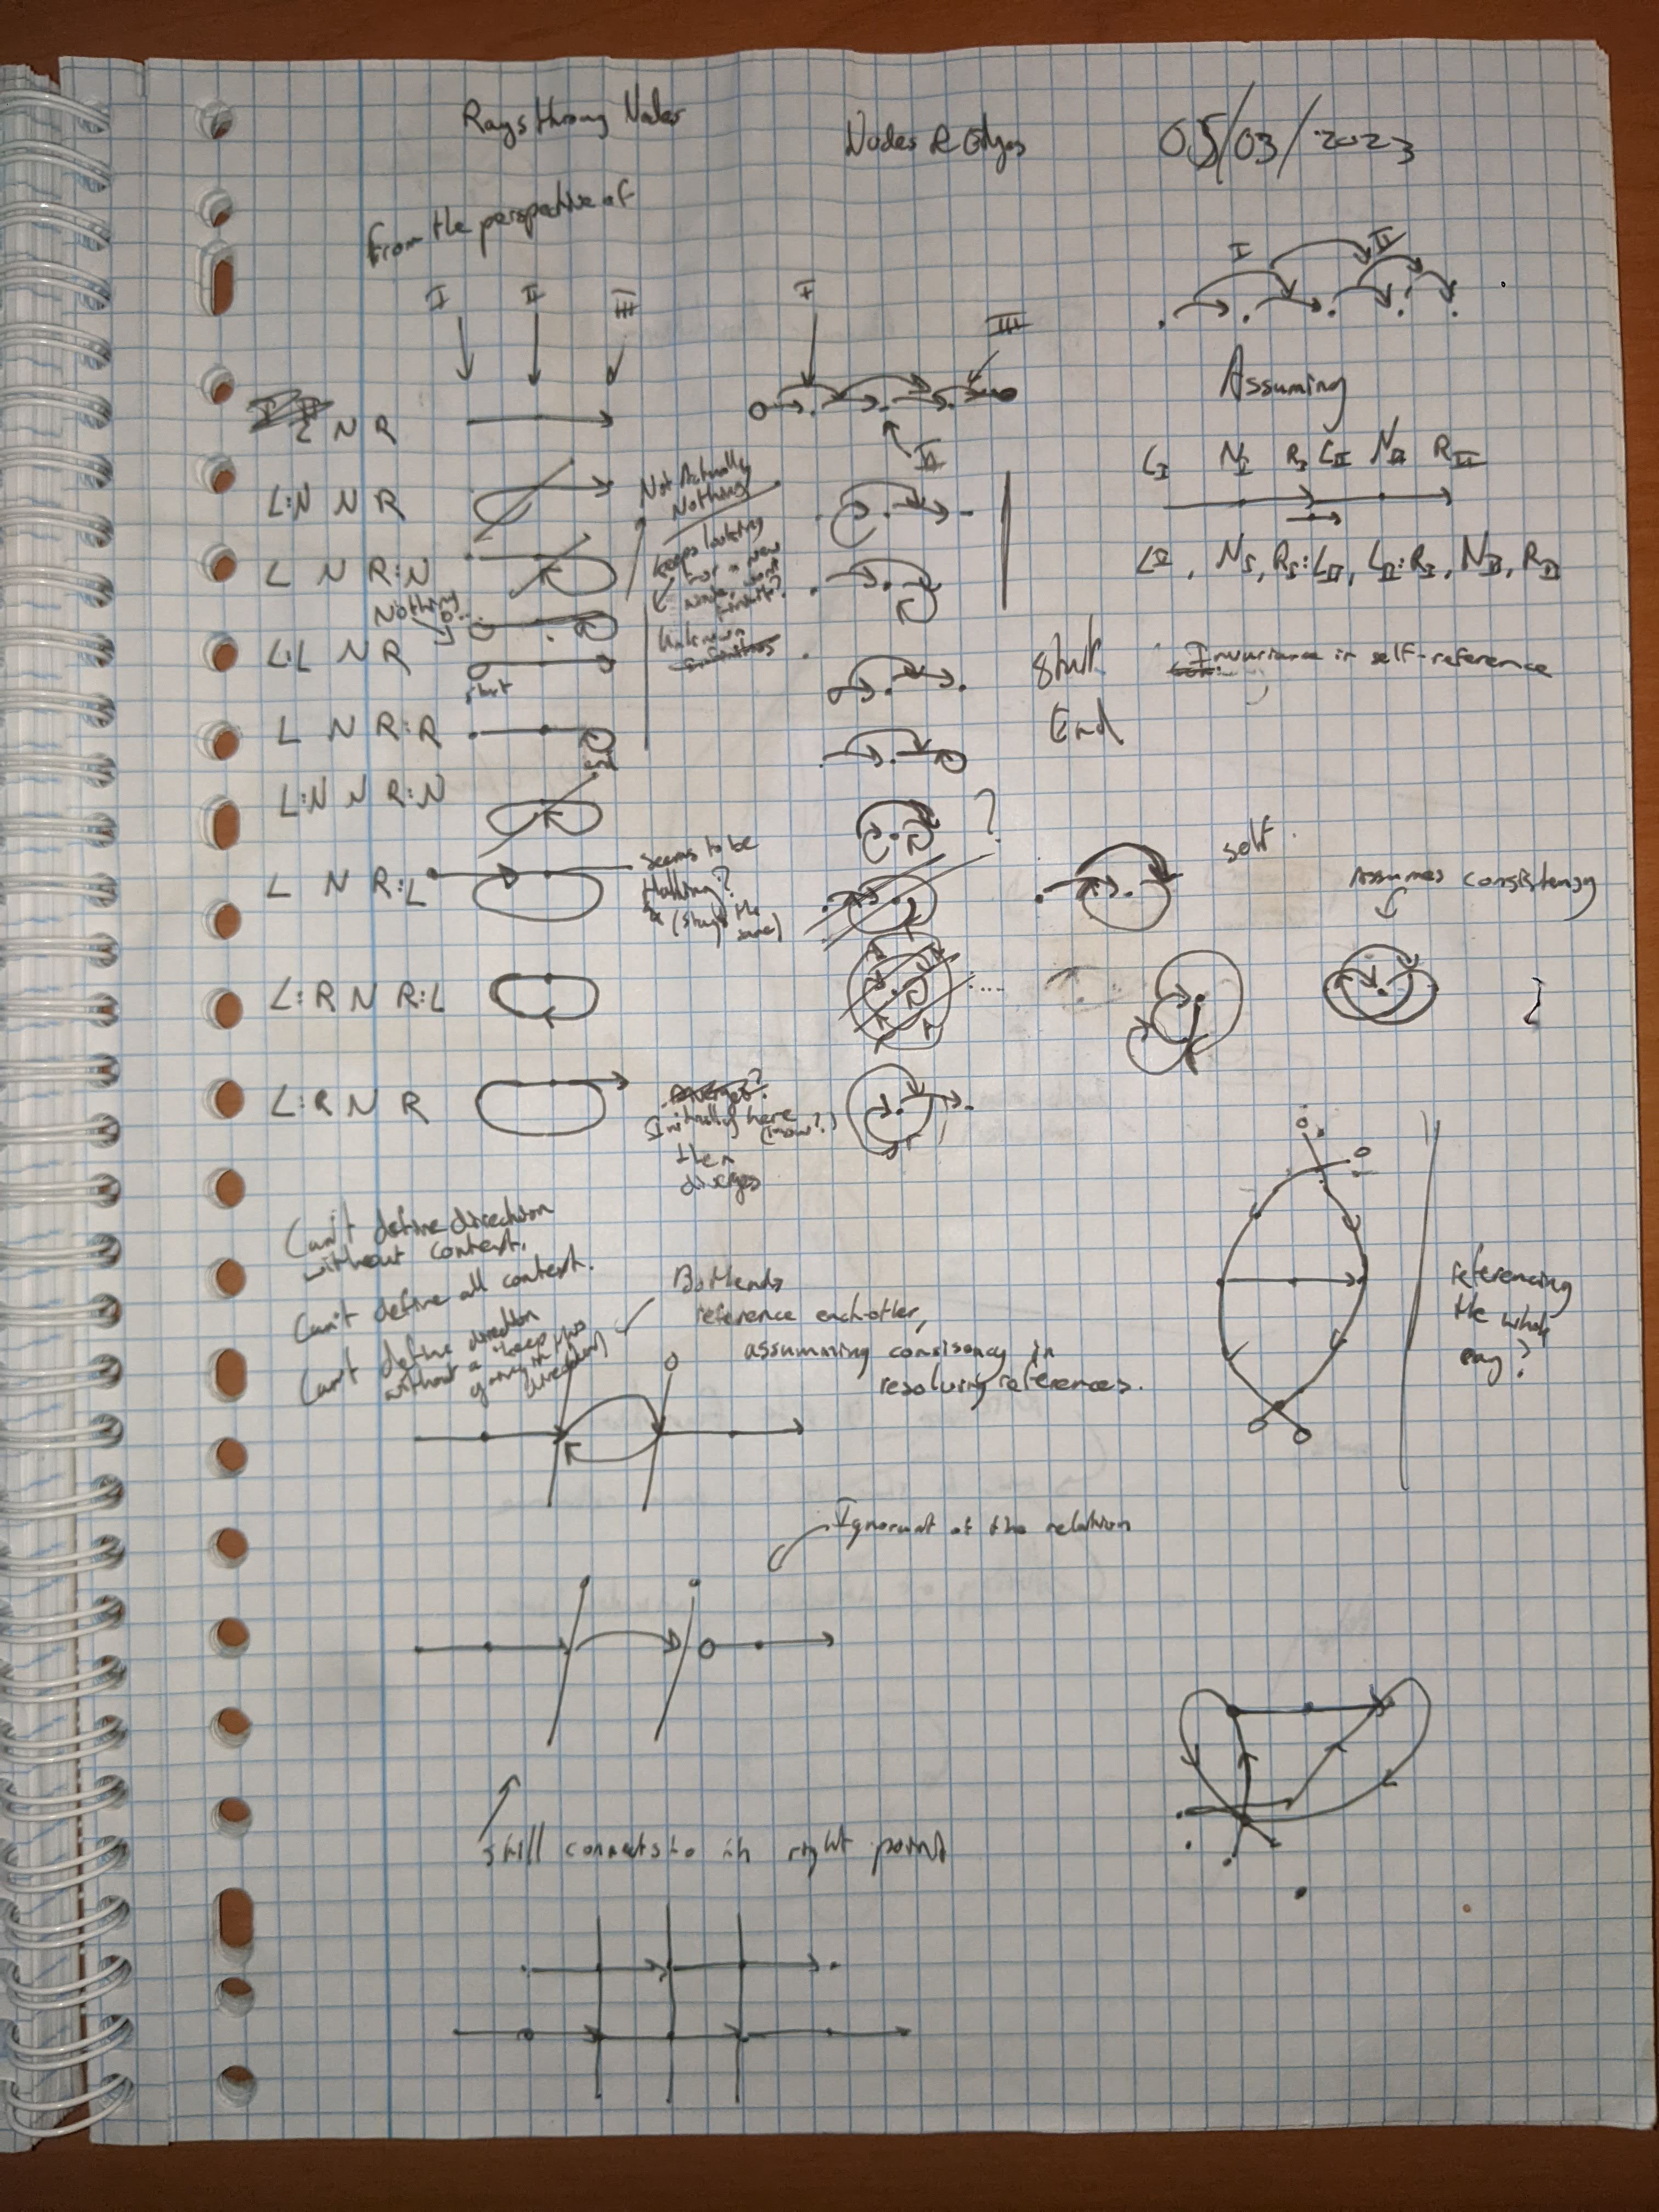 Rays through Nodes
Nodes & Edges
05/03/2023
From the perspective of
I II III
I
III
I II
II
Assuming
L N R
L_I N_I R_I L_II N_II R_II
L:N N R
Not Actually
Nothing
keeps looking
for a new
node, want
L_I, N_I, R_I:L_II, L_II:R_I, N_II, R_II
L N R:N
Nothing
Unknown
L:L N R
start
Start
Invariance in self-reference
L N R:R
end
End
L:N N R:N
?
L N R:L
Seems to be
Halting?
(stays the
same)
self
Assumes consistency
L:R N R:L
....
L:R N R
Diverges?
Initially here
(now?)
then
diverges
Can't define direction
without context.
Can't define all context.
Can't define direction
without a "keep
going in this
direction"
Both ends
reference each-other,
assumming consisency in
resolving references.
referencing
the whole
ray?
Ignorant of the relation
still connects to its right point